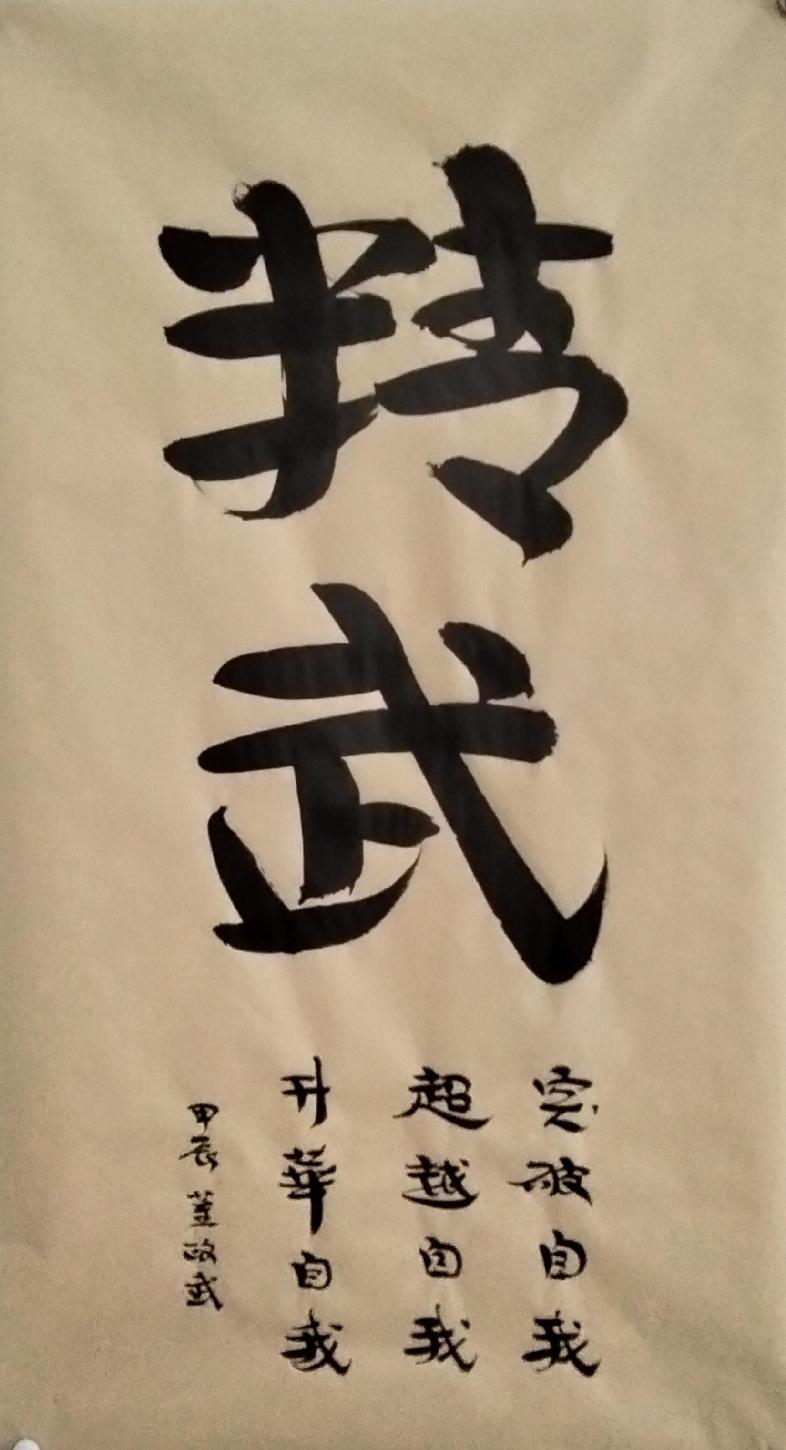 精武
突破自我
超越自我
升華自我
甲辰 董政武